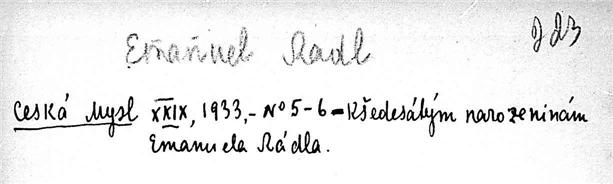 Emanuel Radl
J23
Česká Mysl XXIX, 1933,- No 5-6 - Kšedesátým narozeninám
Emanuela Rádla.